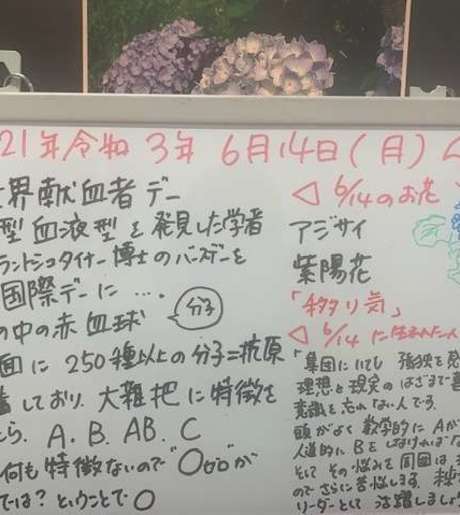 21年令和 3年 6月14日(月)
世界献血者デー
型血液型を発見した学者
ラントシュタイナー博士のバースデーを
国際デーに ‥‥
の中の赤血球 分子
面に 250種以上の分子=抗原
しており、大雑把に特徴を
たら、A. B. AB. C
何も特徴ないので"○ゼロ"が
では? ということで○
◁ 6/14のお花
アジサイ
紫陽花
「移り気」
◁ 6/14 に生まれた人
「集団にいても 強烈を発
理想と現実のはざまで
意識を忘れない人です。
頭がよく 数学的に Aが
人道的に Bをしなければ
そして その悩みを周囲は
のでさらに苦悩します。
リーダーとして 活躍しましょ